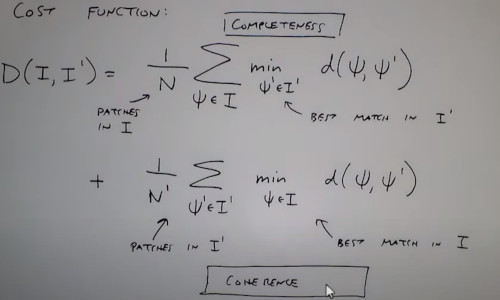 COST FUNCTION:
COMPLETENESS
D(I, I') = 1/N ∑ ψ∈I min ψ'∈I' d(ψ, ψ')
PATCHES IN I
BEST MATCH IN I'
+ 1/N' ∑ ψ'∈I' min ψ∈I d(ψ, ψ')
PATCHES IN I'
BEST MATCH IN I
COHERENCE